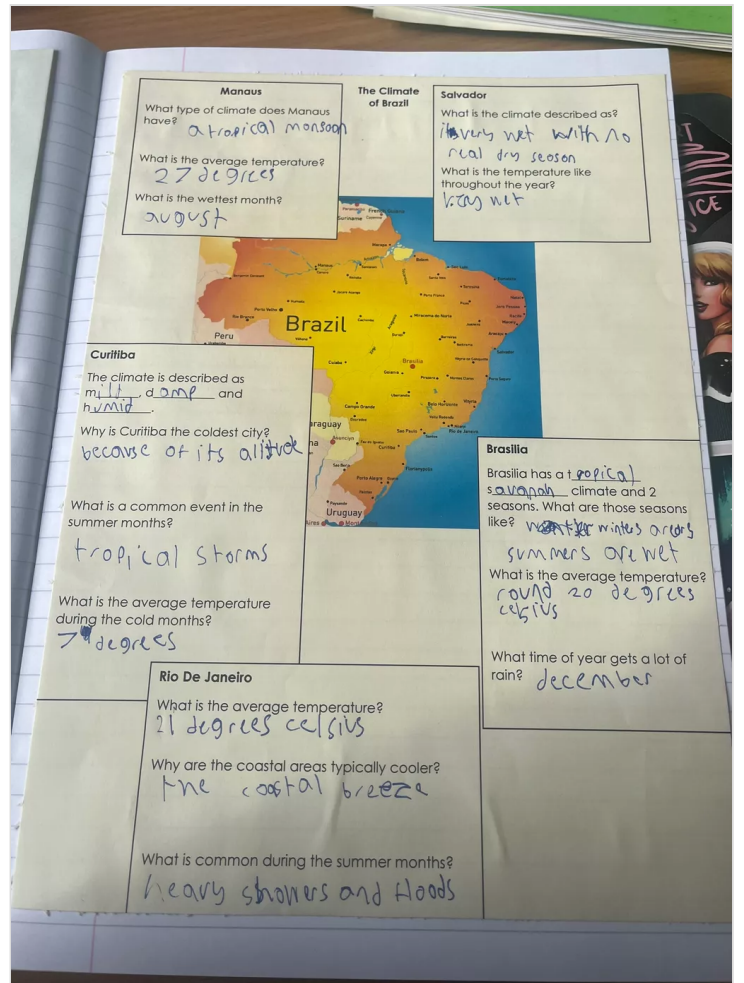 Manaus
What type of climate does Manaus
have? a tropical monsoon
What is the average temperature?
27 degrees
What is the wettest month?
august
The Climate
of Brazil
Salvador
What is the climate described as?
very wet with no
real dry season
What is the temperature like
throughout the year?
very wet
Suriname
Brazil
Peru
Brasilia
Salvador
Campo Grande
Rio de Janeiro
Curitiba
Porto Alegre
Uruguay
Curitiba
The climate is described as
milt, damp and
humid.
Why is Curitiba the coldest city?
because of its alitude
What is a common event in the
summer months?
tropical storms
What is the average temperature
during the cold months?
7 degrees
Brasilia
Brasilia has a tropical
savanah climate and 2
seasons. What are those seasons
like? winters are dry
summers are wet
What is the average temperature?
round 20 degrees
celsius
What time of year gets a lot of
rain? december
Rio De Janeiro
What is the average temperature?
21 degrees celsius
Why are the coastal areas typically cooler?
the coastal breeze
What is common during the summer months?
heavy showers and floods
ICE